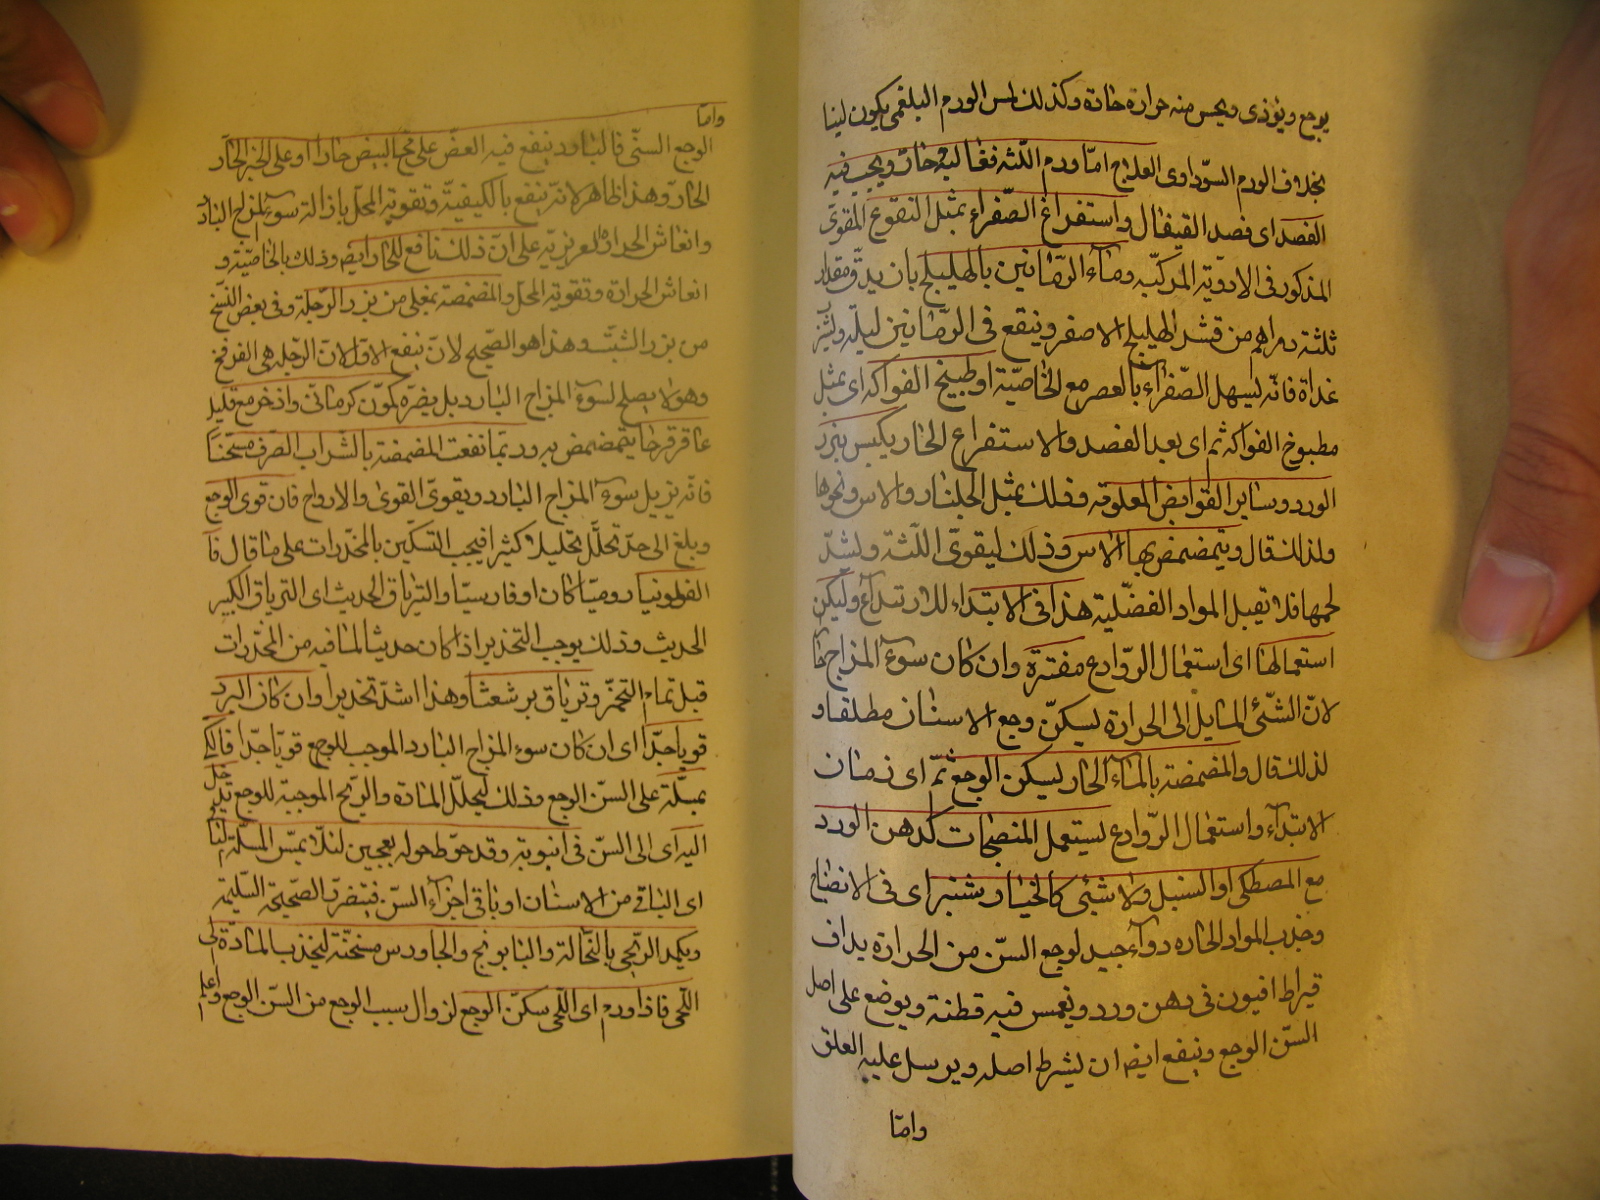 يوجع ويؤذى ويحس منه حرارة حادة وكذلك لمس الورم البلغمى يكون لينا
بخلاف الورم السوداوى العلاج اما ورم اللثه ففالبه حار ويجب فيه
الفصد اى فصد القيفال واستفراغ الصفراء بمثل النقوع المقوى
المذكور فى الادوية المركبه وماء الرمانين بالهليلج بان يدق مقدار
ثلثة دراهم من قشر الهليلج الاصفر وينقع فى الرمانين ليلة ويشرب
غداة فانه يسهل الصفراء بالعصر مع الخاصية او طبيخ الفواكه اى بمثل
مطبوخ الفواكه ثم اى بعد الفصد والاستفراغ الحار يكبس ببزر
الورد وسائر القوابض المعلومة وذلك بمثل الجلنار والاس ونحوها
ولذلك قال ويتمضمض بها الاس وذلك ليقوى اللثة ويشد
لحمها فلا تقبل المواد الفضلية هذا فى الابتداء للارتداع وليكن
استعمالها اى استعمال الروادع مفترة وان كان سوء المزاج حارا
لان الشئ المايل الى الحرارة يسكن وجع الاسنان مطلقا و
لذلك قال والمضمضة بالماء الحار يسكن الوجع ثم اى زمان
الابتداء واستعمال الروادع يستعمل المنضجات كدهن الورد
مع المصطكى او السنبل ولا شئ كالخيار شنبر اى فى الانضاج
وجذب المواد الحاره دواء جيد لوجع السن من الحرارة يداف
قيراط افيون فى دهن ورد ويغمس فيه قطنة ويوضع على اصل
السن الوجع وينفع ايضا ان يشرط اصله ويرسل عليه العلق
واما
واما
الوجع السنى فالبارد ينفع فيه العض على مح البيض حارا وعلى الخبز الحار
الحار وهذا ظاهر لانه ينفع بالكيفية وتقوية المحل بازالة سوء المزاج البارد
وانعاش الحرارة الغريزيه على ان ذلك نافع للحار ايضا وذلك بالخاصية و
انعاش الحرارة وتقوية المحل والمضمضة بمغلى من بزر الرجلة وفى بعض النسخ
من بزر الشبت وهذا هو الصحيح لان نفع الاول لان الرجله هى الفرفخ
وهو لا يصلح لسوء المزاج البارد بل يضره كمون كرمانى واذخر مع قليل
عاقرقرحا يتمضمض به وربما نفعت المضمضة بالشراب الصرف مسخنا
فانه يزيل سوء المزاج البارد ويقوى القوى والارواح فان قوى الوجع
وبلغ الى حد تحلل تحليلا كثيرا فيجب التسكين بالمخدرات على ما قال فا
الفلونيا روميا كان او فارسيا والترياق الحديث اى الترياق الكبير
الحديث وذلك يوجب التخدير اذا كان حديثا لما فيه من المخدرات
قبل تمام التخمر وترياق برشعثا وهذا اشد تخديرا وان كان البرد
قويا جدا اى ان كان سوء المزاج البارد الموجب للوجع قويا جدا فالكى
بمسلة على السن الوجع وذلك ليحلل المادة والريح الموجبة للوجع تدخل
اليه اى الى السن فى انبوبة وقد حوط حوله بعجين لئلا يمس المسلة
اى الباقى من الاسنان او باقى اجزاء السن فيتضرر الصحيحة السليمة
ويكمد الريحى بالنخالة والبابونج والجاورس مسخنة ليجذب المادة الى
اللحى فاذا ورم اى اللحى سكن الوجع لزوال سبب الوجع من السن الوجع واعلم